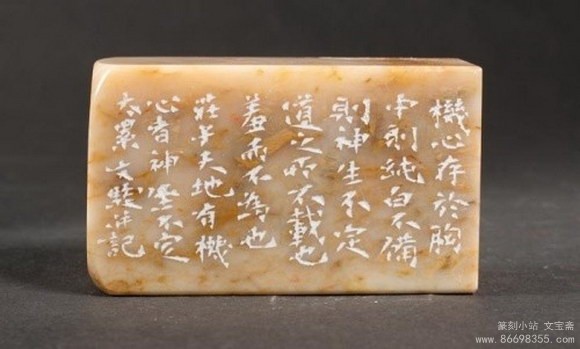 機心存於胸
中則純白不備
則神生不定
道之所不載也
羞而不為也
莊子天地有機
心者神生不定
累文記
篆刻小站 文宝斋
www.86698355.com